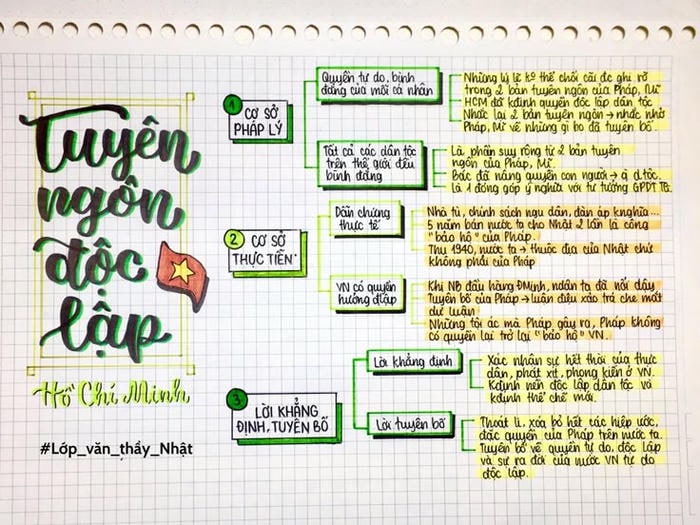 Tuyên
ngôn
độc
lập
Hồ Chí Minh
#Lớp_văn_thầy_Nhật
1
CƠ SỞ
PHÁP LÝ
Quyền tự do, bình
đẳng của mỗi cá nhân
Những lý lẽ kº thể chối cãi đc ghi rõ
trong 2 bản tuyên ngôn của Pháp, Mĩ
HCM đã kđịnh quyền độc lập dân tộc
Nhắc lại 2 bản tuyên ngôn → nhắc nhở
Pháp, Mĩ về những gì họ đã tuyên bố.
Tất cả các dân tộc
trên thế giới đều
bình đẳng
Là phần suy rộng từ 2 bản tuyên
ngôn của Pháp, Mĩ.
Bác đã nâng quyền con người → q d.tộc.
Là 1 đóng góp ý nghĩa với tư tưởng GPDT TG.
2
CƠ SỞ
THỰC TIỄN
Dẫn chứng
thực tế
Nhà tù, chính sách ngu dân, đàn áp knghĩa...
5 năm bán nước ta cho Nhật 2 lần là công
"bảo hộ" của Pháp.
Thu 1940, nước ta → thuộc địa của Nhật chứ
không phải của Pháp
VN có quyền
hưởng đlập
Khi NB đầu hàng ĐMinh, ndân ta đã nổi dậy
Tuyên bố của Pháp → luận điệu xảo trá che mắt
dư luận
Những tội ác mà Pháp gây ra, Pháp không
có quyền lại trở lại "bảo hộ" VN.
3
LỜI KHẲNG
ĐỊNH, TUYÊN BỐ
Lời khẳng định
Xác nhận sự hết thời của thực
dân, phát xít, phong kiến ở VN.
Kđịnh nền độc lập dân tộc và
kđịnh thể chế mới.
Lời tuyên bố
Thoát li, xoá bỏ hết các hiệp ước,
đặc quyền của Pháp trên nước ta.
Tuyên bố về quyền tự do, độc lập
và sự ra đời của nước VN tự do
độc lập.